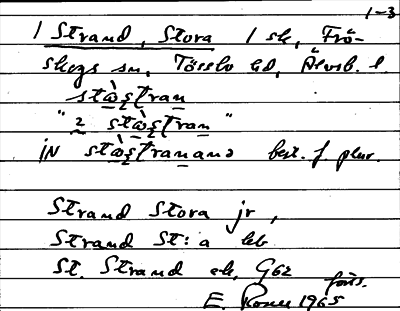 1-3
/ Strand, Stora / sk, Frö-
skogs sn, Tössbo hd, Älvsb. l.
stɷ̀ştran
"2 stɷ̀ştran"
IN stɷ̀ştranana best. f. plur.
Strand Stora jr,
Strand St:a
St. Strand ek, G62 förs.
E. 1965